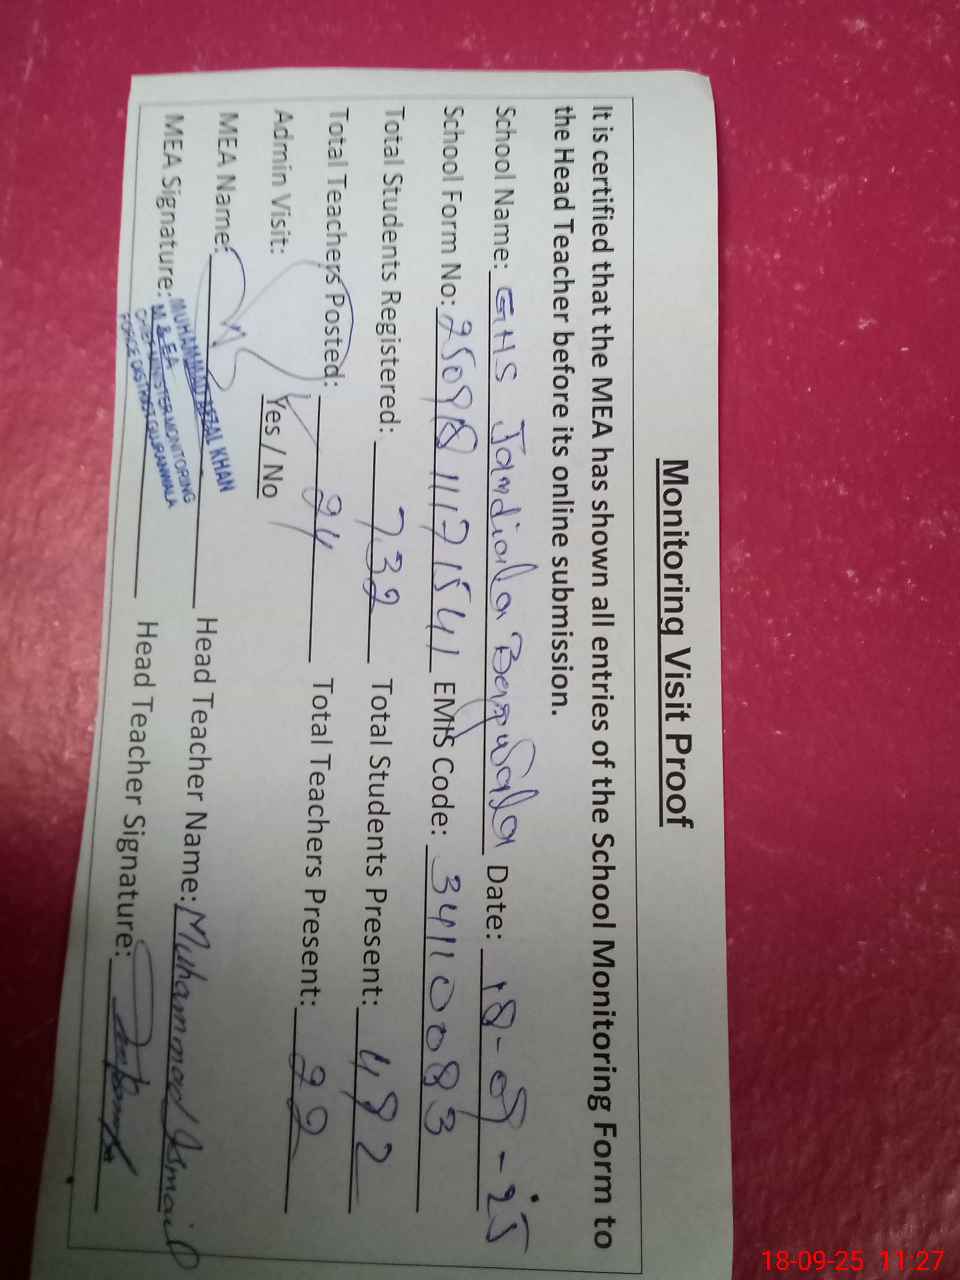 Monitoring Visit Proof
It is certified that the MEA has shown all entries of the School Monitoring Form to
the Head Teacher before its online submission.
School Name: GHS Jandiala Bagwala Date: 18-09-25
School Form No: EMIS Code: 34110083
Total Students Registered: 732 Total Students Present: 492
Total Teachers Posted: 24 Total Teachers Present: 22
Admin Visit: Yes / No
MEA Name: Head Teacher Name: Muhammad Ismail
MEA Signature: Head Teacher Signature:
MUHAMMAD AFZAL KHAN
M & EA
CHIEF MINISTER MONITORING
FORCE DISTRICT GUJRANWALA
18-09-25 11:27